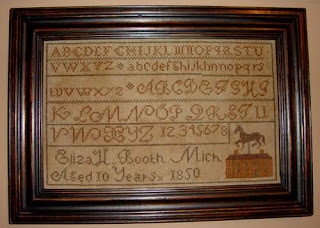 ABCDEFGHIJKLMNOPQRSTU
VWXYZ abcdefghijklmnopqrs
tuvwxyz ABCDEFGHI
KLMNOPQRSTU
VWXYZ 12345678
Eliza H. Booth. Mich.
Aged 10 Years. 1850